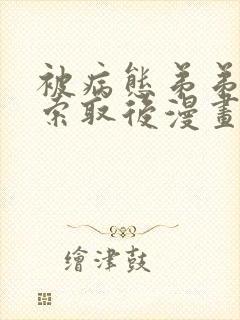 被病態弟弟
索取後漫畫
繪津鼓